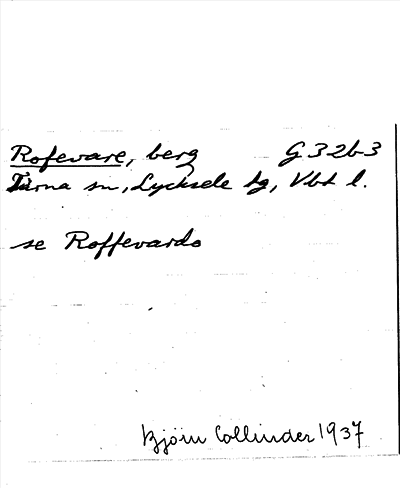 Rofevare, berg G32b3
Tärna sn, Lycksele lg, Vbt l.
se Roffevardo
Björn Collinder 1937